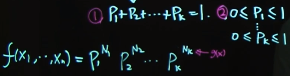 ① P₁+P₂+⋯+Pₖ=1. ② 0≤P₁≤1
⋮
0≤Pₖ≤1
f(x₁,⋯,xₙ)=P₁^N₁ P₂^N₂ ⋯ Pₖ^Nₖ